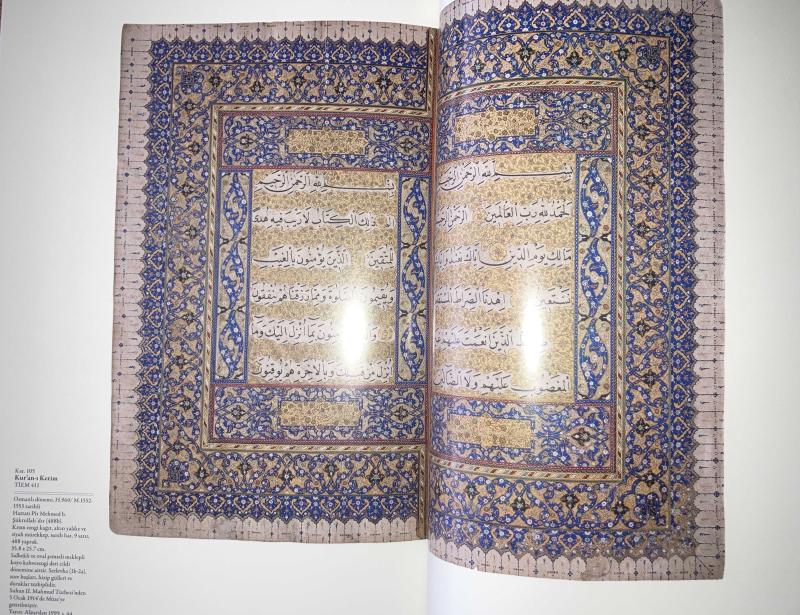 بسم الله الرحمن الرحيم
الحمد لله رب العالمين الرحمن
مالك يوم الدين اياك نعبد واياك
نستعين اهدنا الصراط
الذين انعمت عليهم
المغضوب عليهم ولا الضالين
بسم الله الرحمن الرحيم
الم ذلك الكتاب لا ريب فيه هدى
للمتقين الذين يؤمنون بالغيب
ويقيمون الصلوة ومما رزقناهم ينفقون
يؤمنون بما انزل اليك وما
انزل من قبلك وبالاخرة هم يوقنون
Kat. 105
Kur'an-ı Kerim
TİEM 411
Osmanlı dönemi, H.960/ M.1552-
1553 tarihli
Hattatı Pir Mehmed b.
Şükrullah'dır (488b).
Krem rengi kağıt, altın yaldız ve
siyah mürekkep, nesih hat, 9 satır,
488 yaprak.
35.8 x 25.7 cm.
Salbekli ve oval şemseli miklepli
koyu kahverengi deri cildi
dönemine aittir. Serlevha (1b-2a),
sure başları, hizip gülleri ve
duraklar tezhiplidir.
Sultan II. Mahmud Türbesi'nden
5 Ocak 1914'de Müze'ye
getirilmiştir.
Yayın: Alparslan 1999, s. 44